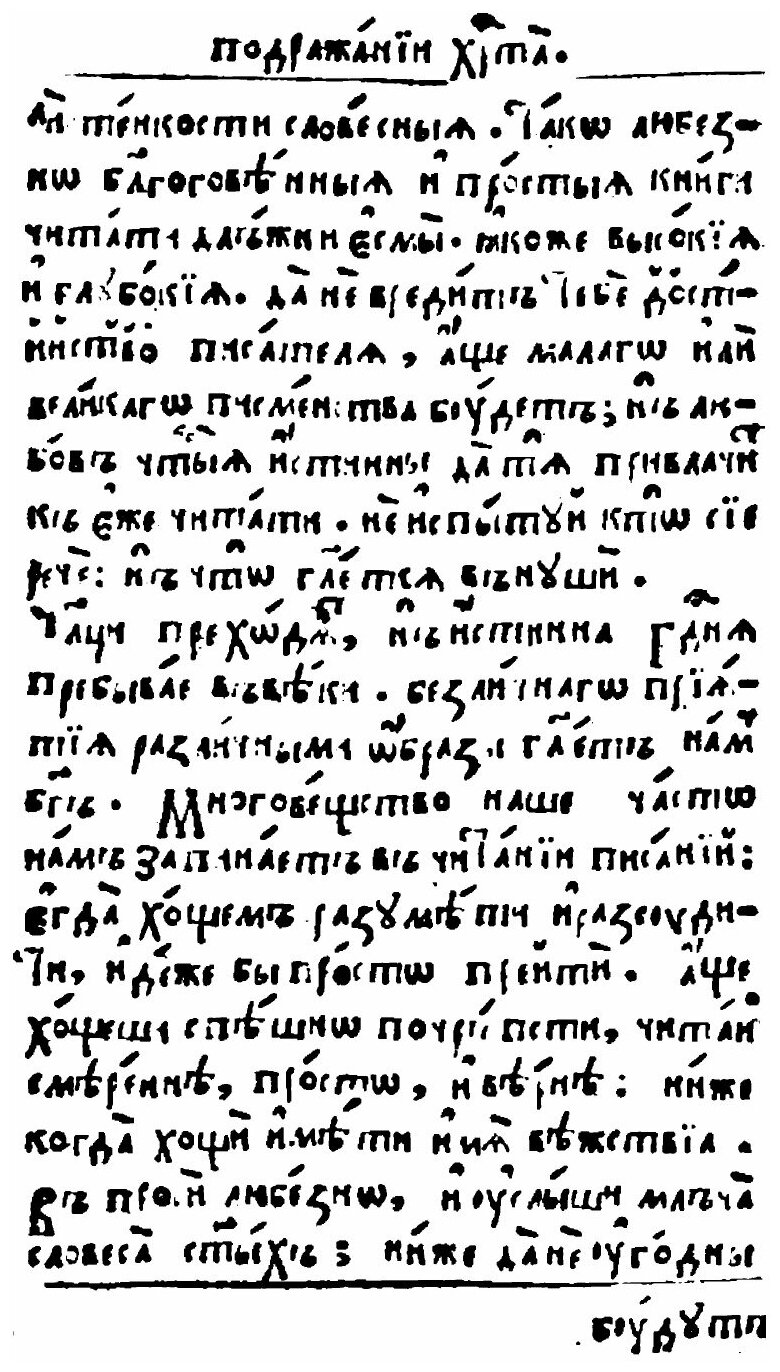 подража́нїи хрⷭ҇та̀.
ли̑ те́нкости слове́сныѧ. Та́кѡ любез-
нѡ благоговѣ́нныѧ и҆ про́стыѧ кни́ги
чита́ти дꙋ́лжни є҆смы̀. ꙗ҆́коже высо́кїѧ
и҆ глꙋбо́кїѧ. да̀ не вреди́тъ тебѐ до́ст-
и́нство писа́телѧ, а҆́ще малагѡ и҆лѝ
вели́кагѡ писме́нства бꙋ́детъ; нъ лю-
бо́въ чⷭ҇тыѧ и҆́стинны да̀ тѧ̀ привлачи́тъ
къ є҆́же чита́ти. не и҆спы́тꙋй кто̀ сїе
речѐ: нъ что̀ гл҃етсѧ внꙋшѝ.
Человѣ́цы прехо́дѧтъ, нъ и҆́стинна гдⷭ҇нѧ
пребыва́етъ въвѣ́ки. без ли́чнагѡ прїѧ́-
тїѧ разли́чными ѻ҆бразы гл҃етъ на́мъ
бг҃ъ. Многове́щество наше ча́стѡ
на́мъ запина́етъ въ чита́нїи писа́нїй:
є҆гда̀ хо́щемъ разꙋмѣ́ти и҆ разсꙋди-
ти, и҆дѣ́же бы про́стѡ прейтѝ. а҆́ще
хо́щеши спѣ́шнѡ почрⸯпсти, чита́й
смѣре́ннѣ, про́стѡ, и҆ вѣ́рнѣ: ни́же
когда̀ хощѝ и҆мѣ́ти и҆́мѧ вѣ́жествїа.
Въпро́си любе́знѡ, и҆ ᲂу҆слы́ши млъча̀
словеса̀ ст҃ы́хъ; ни́же да̀ не ᲂу҆го́дны
бꙋ́дꙋтъ